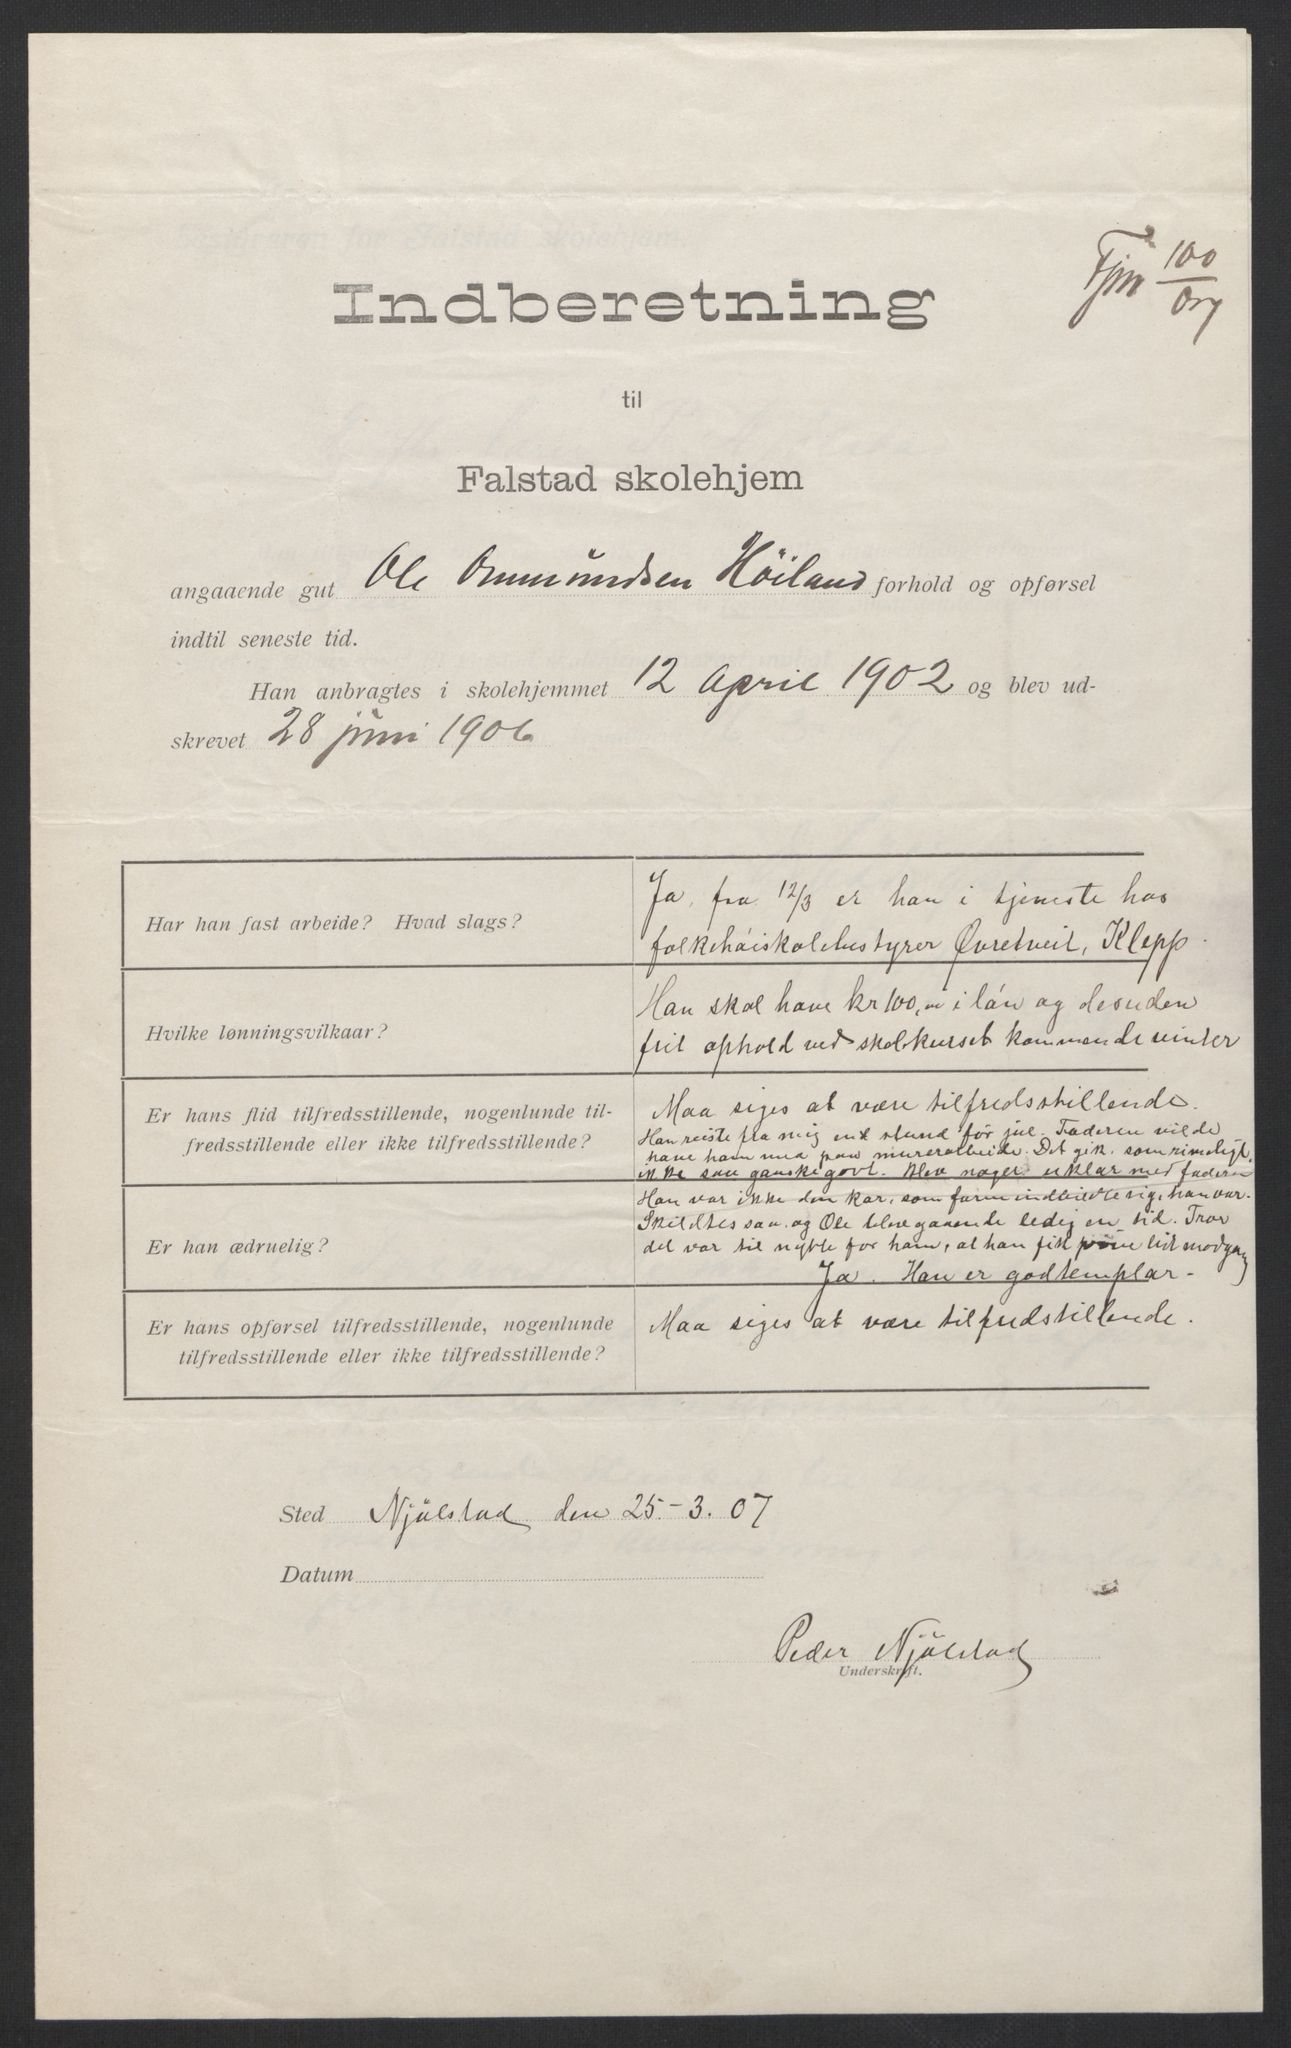 Tjm 100/07
Indberetning
til
Falstad skolehjem
angaaende gut Ole Ommundsen Höiland forhold og opførsel
indtil seneste tid.
Han anbragtes i skolehjemmet 12 april 1902 og blev ud-
skrevet 28 juni 1906
Har han fast arbeide? Hvad slags?
Ja, fra 12/3 er han i tjeneste hos
folkehöiskolebestyrer Øvretveit, Klepp.
Hvilke lønningsvilkaar?
Han skal have kr 100,00 i lön og desuden
frit ophold ved skolekurset kommende vinter
Er hans flid tilfredsstillende, nogenlunde til-
fredsstillende eller ikke tilfredsstillende?
Maa siges at være tilfredsstillende.
Han reiste fra mig en stund för jul. Faderen vilde
have ham med paa murerarbeide. Det gik, som rimeligt,
ikke saa ganske godt. Blev noget uklar med faderen
Er han ædruelig?
Han var ikke den kar, som faren indbildte sig, han var.
Skildtes saa, og Ole blev gaaende ledig en tid. Tror
det var til nytte for ham, at han fik lidt modgang
Ja. Han er godtemplar.
Er hans opførsel tilfredsstillende, nogenlunde
tilfredsstillende eller ikke tilfredsstillende?
Maa siges at være tilfredstillende.
Sted Njålstad den 25-3.07
Datum
Peder Njålstad
Underskrift.